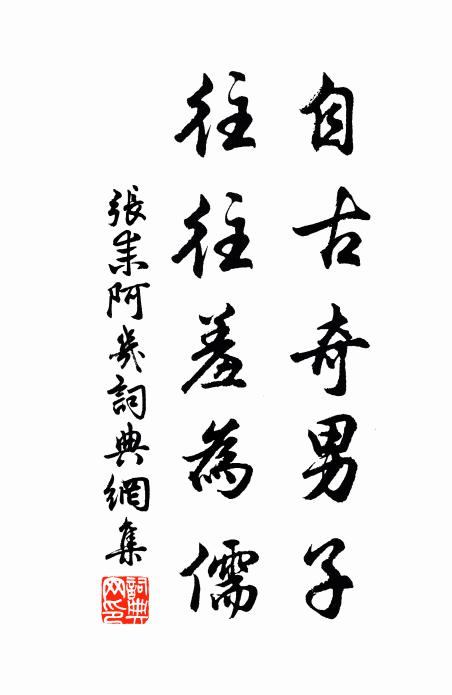 自古奇男子
往往羞為儒
張耒阿幾詞典網集
詞典
网印